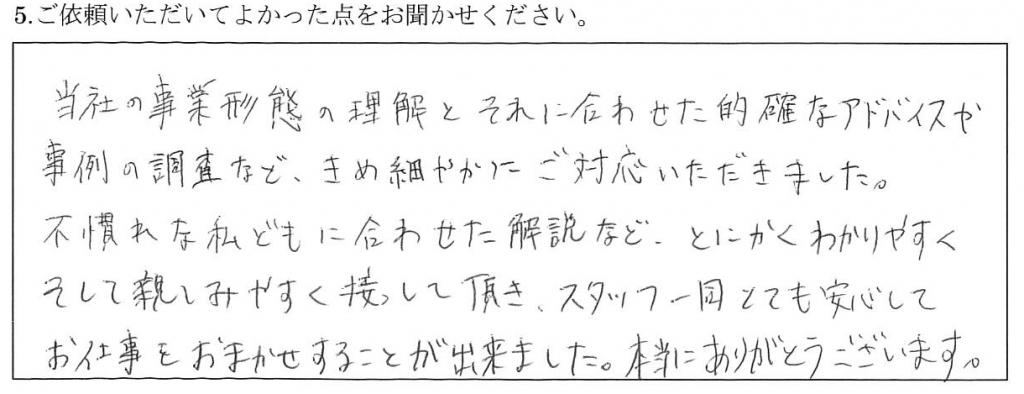 5.ご依頼いただいてよかった点をお聞かせください。
当社の事業形態の理解とそれに合わせた的確なアドバイスや
事例の調査など、きめ細やかにご対応いただきました。
不慣れな私どもに合わせた解説など、とにかくわかりやすく
そして親しみやすく接して頂き、スタッフ一同とても安心して
お仕事をおまかせすることが出来ました。本当にありがとうございます。